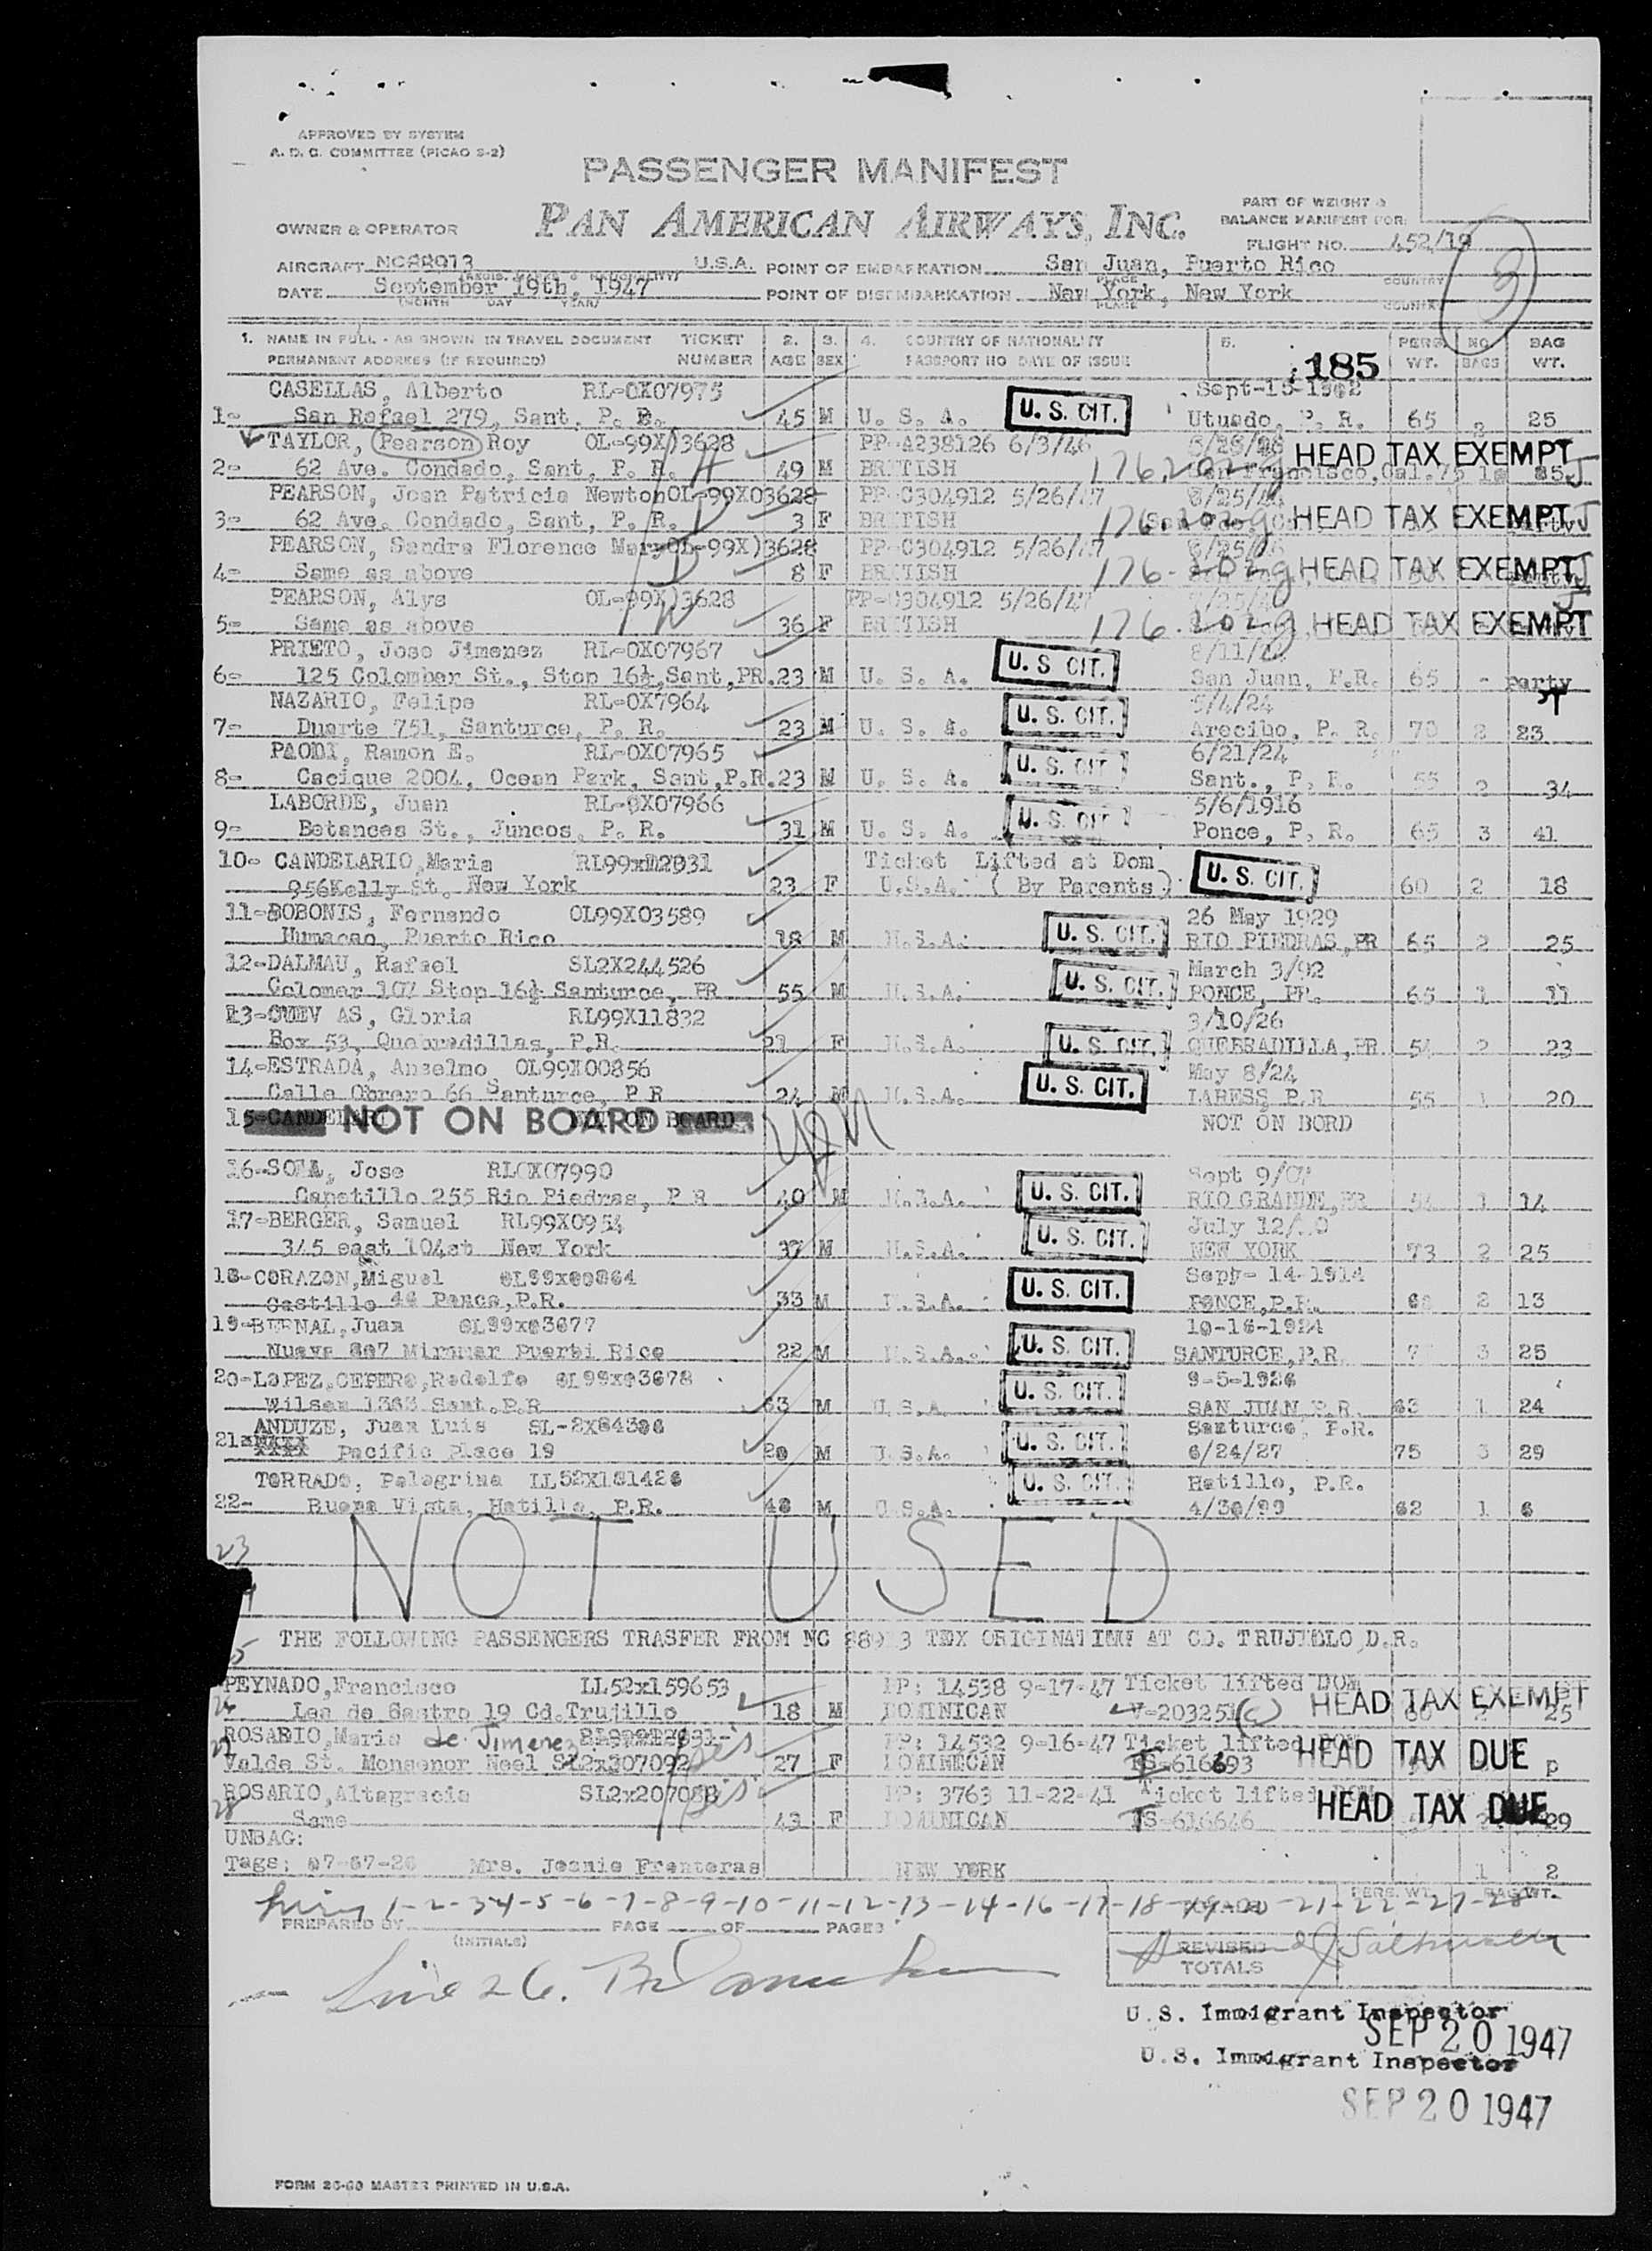 APPROVED BY SYSTEM
A. D. C. COMMITTEE (PICAO S-2)
PASSENGER MANIFEST
PAN AMERICAN AIRWAYS, INC.
PART OF WEIGHT &
BALANCE MANIFEST FOR:
OWNER & OPERATOR
FLIGHT NO. 452/19
AIRCRAFT NC88913 U.S.A. POINT OF EMBARKATION San Juan, Puerto Rico COUNTRY
DATE September 19th, 1947 POINT OF DISEMBARKATION New York, New York COUNTRY
(MONTH DAY YEAR) PLACE
3
1. NAME IN FULL - AS SHOWN IN TRAVEL DOCUMENT TICKET 2. 3. 4. COUNTRY OF NATIONALITY 5. PERS. NO. BAG
PERMANENT ADDRESS (IF REQUIRED) NUMBER AGE SEX PASSPORT NO DATE OF ISSUE 185 WT. BAGS WT.
CASELLAS, Alberto RL-0X07975
1- San Rafael 279, Sant, P. R. 45 M U. S. A. U. S. CIT. Utuado, P. R. 65 25
TAYLOR, Pearson Roy OL-99X)3628 PP-A238126 6/3/46 HEAD TAX EXEMPT
2- 62 Ave. Condado, Sant, P. R. 49 M BRITISH San Francisco, Cal. 75
PEARSON, Joan Patricia Newton OL-99X03628 PP-C304912 5/26/47
3- 62 Ave. Condado, Sant, P. R. 3 F BRITISH HEAD TAX EXEMPT
PEARSON, Sandra Florence Mary OL-99X)3628 PP-C304912 5/26/47
4- Same as above 8 F BRITISH HEAD TAX EXEMPT
PEARSON, Alys OL-99X)3628 PP-C304912 5/26/47
5- Same as above 36 F BRITISH HEAD TAX EXEMPT
PRIETO, Jose Jimenez RL-0X07967
6- 125 Colombar St., Stop 16½, Sant, PR. 23 M U. S. A. U. S CIT. San Juan, P.R. 65 - party
NAZARIO, Felipe RL-0X7964 5/4/24
7- Duarte 751, Santurce, P. R. 23 M U. S. A. U. S. CIT. Arecibo, P. R. 70 2 23
PAOLI, Ramon E. RL-0X07965 6/21/24
8- Cacique 2004, Ocean Park, Sant, P.R. 23 M U. S. A. U. S. CIT Sant., P. R. 55 2 34
LABORDE, Juan RL-0X07966 5/6/1916
9- Betances St., Juncos, P. R. 31 M U. S. A. U. S. CIT Ponce, P. R. 65 3 41
10- CANDELARIO, Maria Ticket Lifted at Dom
956Kelly St. New York 23 F U.S.A. ( By Parents ) U. S. CIT. 60 2 18
11-BOBONIS, Fernando OL99X03589 26 May 1929
Humacao, Puerto Rico 18 M U.S.A. U. S. CIT. RIO PIEDRAS, PR 65 2 25
12-DALMAU, Rafael SL2X244526 March 3/92
Colomer 107 Stop 16½ Santurce, PR 55 M U.S.A. U. S. CIT. PONCE, PR. 65 1 11
13-CUEV AS, Gloria RL99X11832 3/10/26
Box 53, Quebradillas, P.R. 21 F U.S.A. U. S. CIT. QUEBRADILLA, PR 54 2 23
14-ESTRADA, Anselmo OL99X00856 May 8/24
Calle Obrero 66 Santurce, P R 24 M U.S.A. U. S. CIT. LARESS P.R 55 1 20
NOT ON BOARD NOT ON BORD
16-SOTA, Jose RL0X07990
Capetillo 255 Rio Piedras, P R 40 M U.S.A. U. S. CIT. RIO GRANDE, PR 54 1 14
17-BERGER, Samuel RL99X0954
345 east 104st New York 37 M U.S.A. U. S. CIT. NEW YORK 73 2 25
18-CORAZON, Miguel Sept- 14-1914
Castillo Ponce, P.R. 33 M U.S.A. U. S. CIT. PONCE, P.R. 2 13
19-BERNAL, Juan OL99x03677 10-16-1924
22 M U.S.A. U. S. CIT. SANTURCE, P.R. 3 25
20-LOPEZ, CEPERO, Rodolfo OL99x03678 9-5-1926
Wilson 1363 Sant. P.R 63 M U.S.A U. S. CIT. SAN JUAN P.R. 63 1 24
ANDUZE, Juan Luis Santurce, P.R.
21- Pacific Place 19 20 M U.S.A. U. S. CIT. 6/24/27 75 3 29
TORRADO, Pelegrina Hatillo, P.R.
22- Buena Vista, Hatillo, P.R. 48 M U.S.A. U. S. CIT. 4/30/99 62 1 6
23
NOT USED
THE FOLLOWING PASSENGERS TRASFER FROM NC 88913 TEX ORIGINATING AT CD. TRUJILLO, D.R.
PEYNADO, Francisco LL52x159653 PP: 14538 9-17-47 Ticket lifted DOM
26 Las de Gastro 19 Cd. Trujillo 18 M DOMINICAN V-203251 (c) HEAD TAX EXEMPT 25
ROSARIO, Maria de Jimenez PP: 14532 9-16-47 Ticket lifted DOM
27 Valde St. Monsenor Noel SL2x207092 27 F DOMINICAN TS-616693 HEAD TAX DUE p
ROSARIO, Altagracia SL2x207088 PP: 3763 11-22-41 Ticket lifted DOM
28 Same 43 F DOMINICAN TS-616646 HEAD TAX DUE 29
UNBAG:
Tags: 07-67-26 Mrs. Jeanie Fronteras NEW YORK 1 2
1-2-3-4-5-6-7-8-9-10-11-12-13-14-16-17-18-19-20-21-22-27-28
PREPARED BY PAGE OF PAGES
(INITIALS)
REVISED
TOTALS
Line 26.
U.S. Immigrant Inspector
SEP 20 1947
U.S. Immigrant Inspector
SEP 20 1947
FORM 26-60 MASTER PRINTED IN U.S.A.